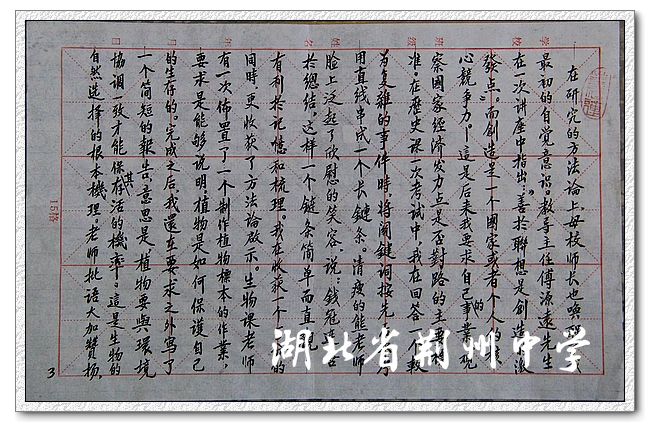 在研究的方法論上，母校师长也唤
最初的自觉意识。教导主任傅源遠先生
在一次讲座中指出："善於聯想是創造激
發点。"而創造是一个國家或者个人的
心競争力。這是后来我要求自己事業
察國家经濟发力点是否對路的主要
准。在歷史课一次考试中，我在回答一个較
为复雜的事件時，将闌键词按先
用直线串成一个长鏈条。清瘦的熊老师
脸上泛起了欣慰的笑容，说：钱冠
於總结，这样一个鏈条简单而直
有利於记憶和梳理。我在收获一个的
同時，更收获了方法論啟示。生物课老师
有一次佈置了一个制作植物標本的作業，
要求是能够说明植物是如何保護自己
的生存的。完成之后，我還在要求之外寫了
一个简短的報告，意思是植物要與環境
協调一致才能保存其活的機率。這是生物的
自然选择的根本機理。老师批语大加贊扬，
学
校
班
级
姓
名
年
月
日
15格
3
湖北省荆州中学